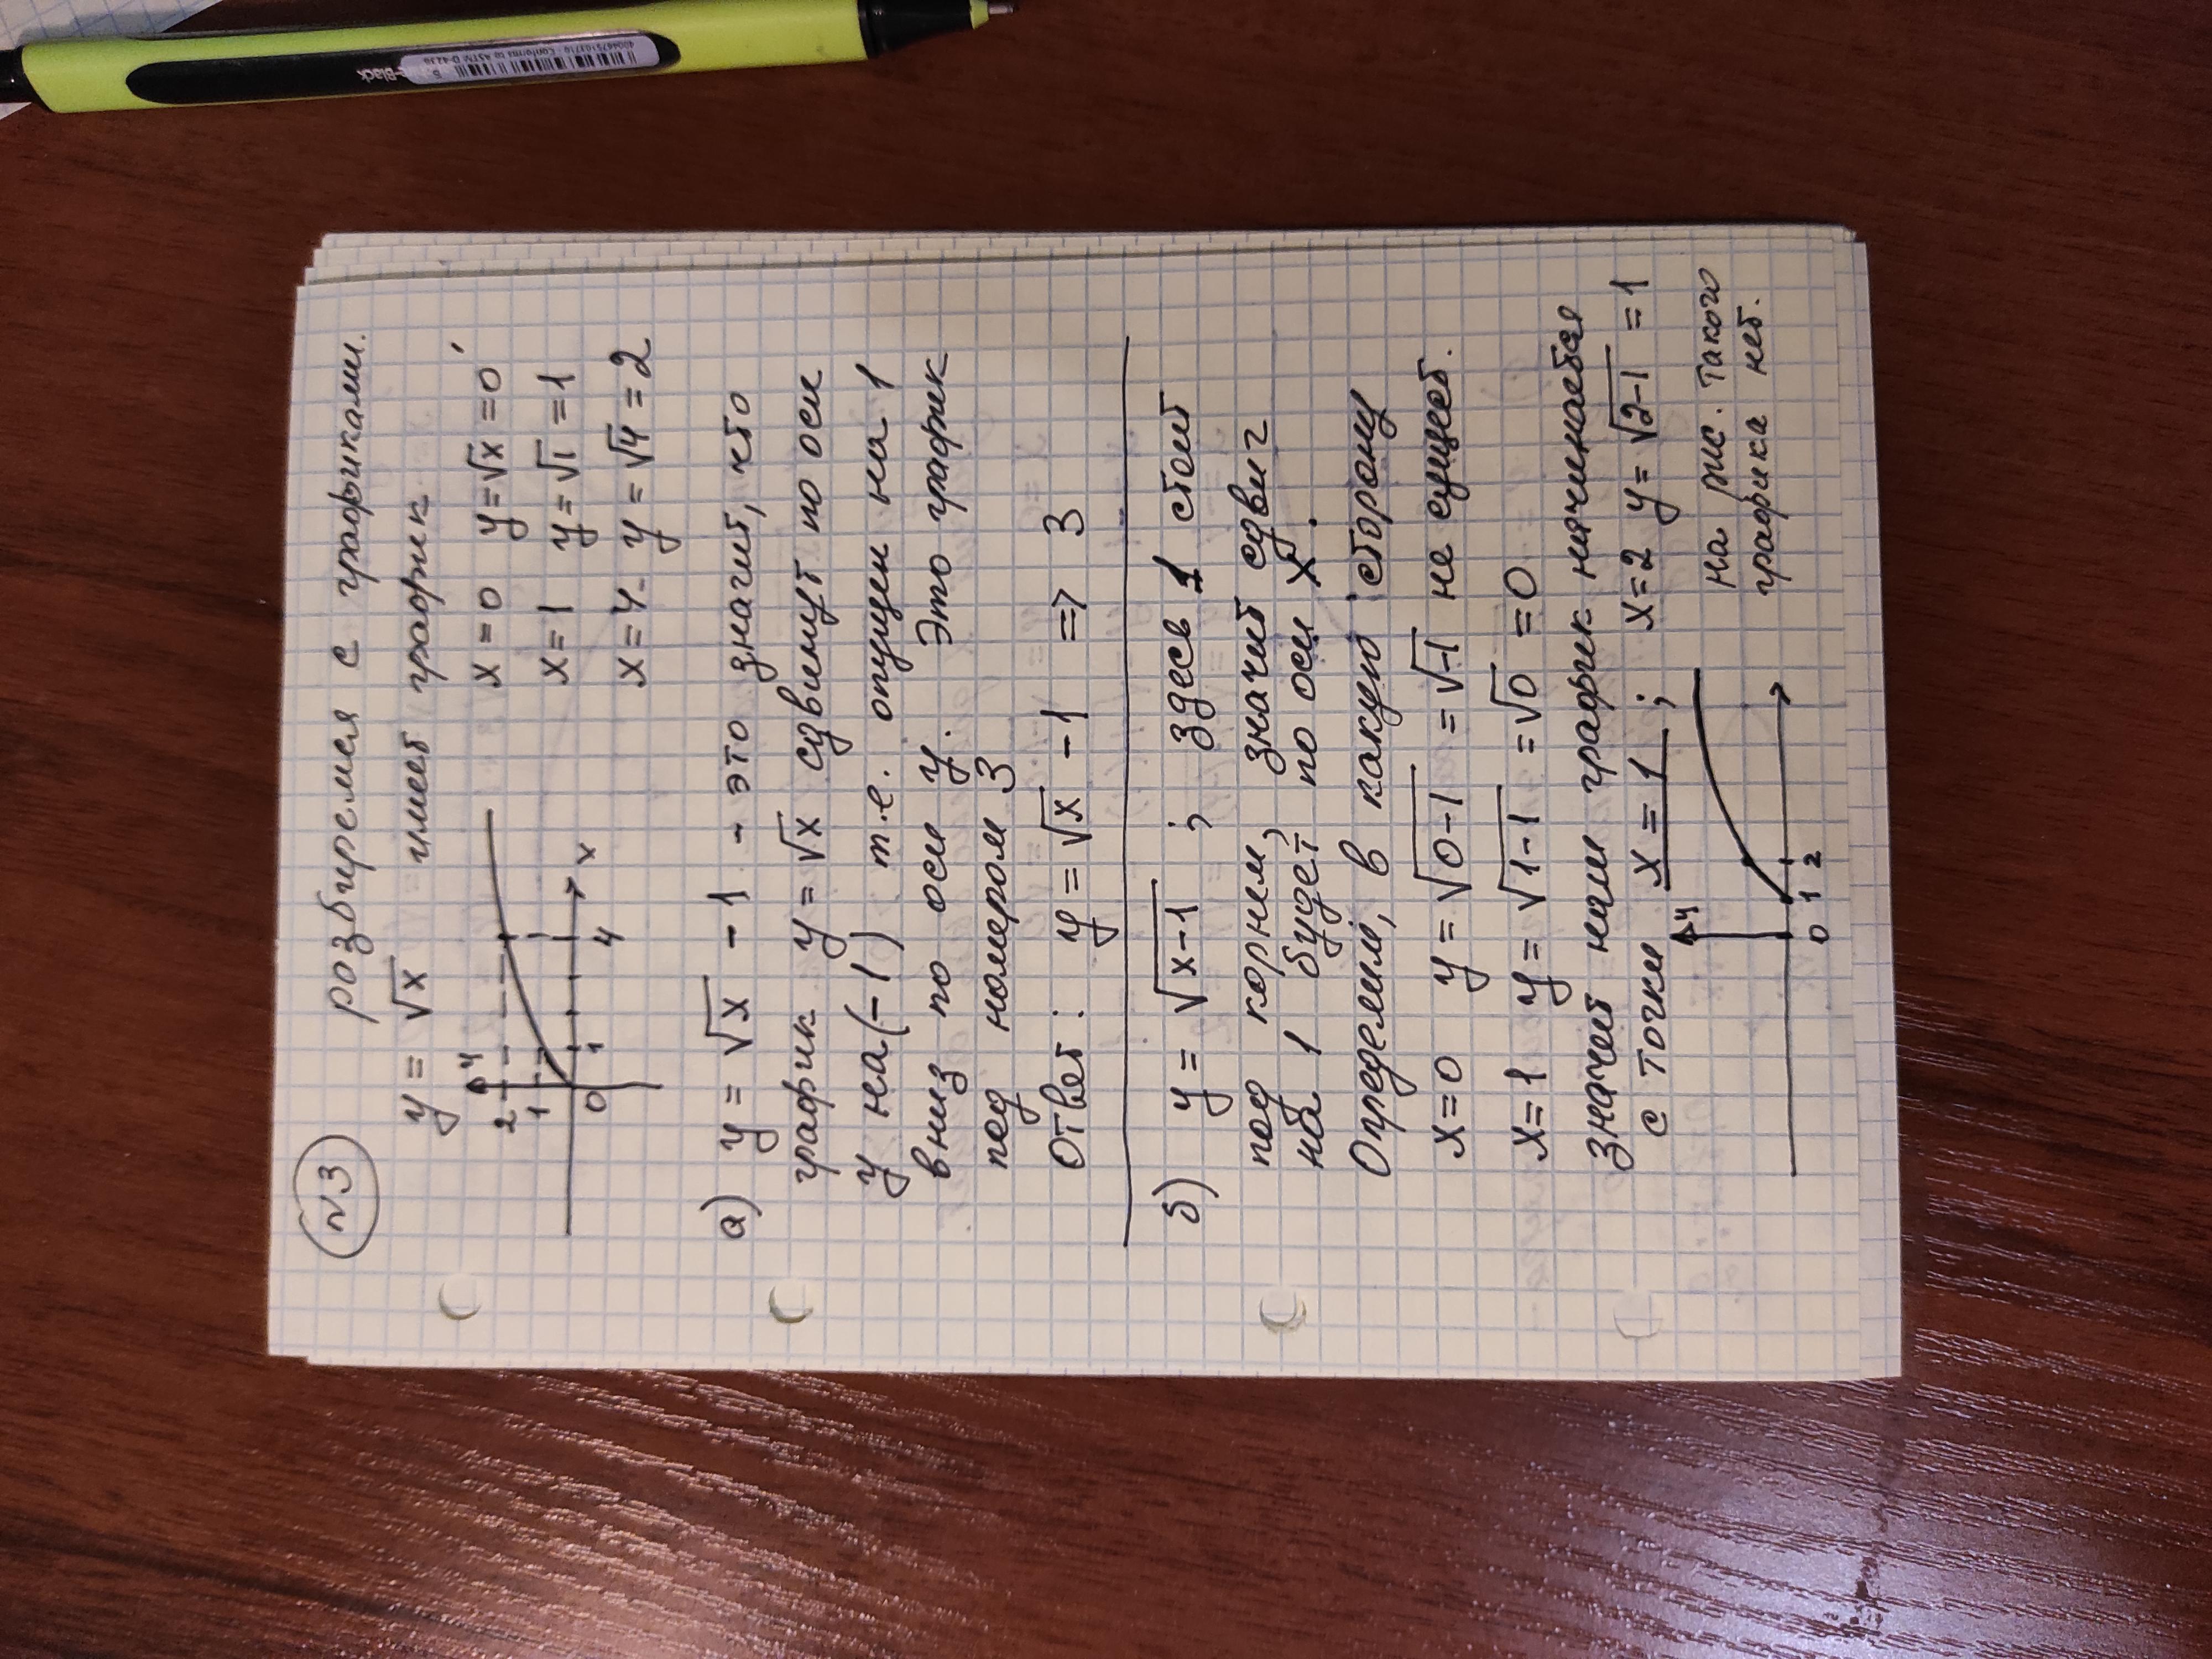 №3 розбиремся с графиками.
y = √x имеет график
y
2
1
0 1 4 x
x=0 y=√x=0
x=1 y=√1=1
x=4 y=√4=2
а) y = √x - 1 - это значит, что
график y=√x сдвинут по оси
y на (-1) т.е. опущен на 1
вниз по оси y. Это график
под номером 3
Ответ: y=√x -1 => 3
б) y = √x-1 ; здесь 1 стоит
под корнем, значит сдвиг
на 1 будет по оси x.
Определим, в какую сторону
x=0 y=√0-1 =√-1 не сущест.
x=1 y=√1-1 =√0 =0
значит наш график начинается
с точки x=1 ; x=2 y=√2-1 =1
y
0 1 2
на рис. такого
графика нет.
-Black
4004675103710 - Conforms to ASTM D-4236